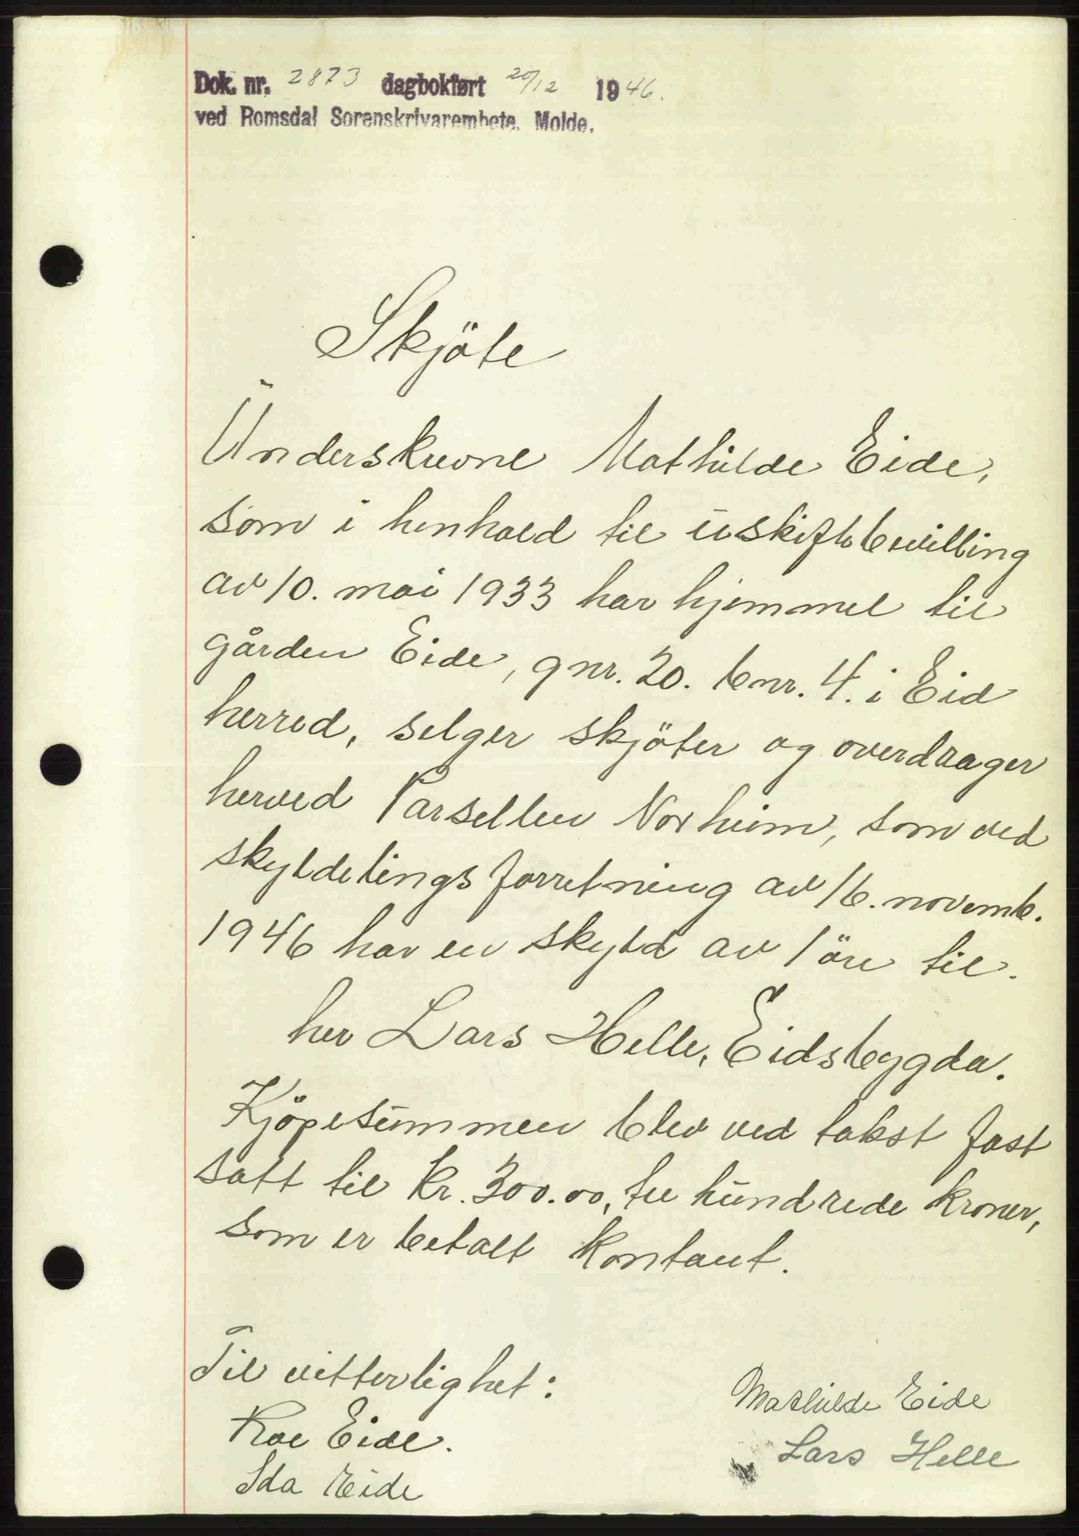 Dok. nr. 2873 dagbokført 20/12 1946.
ved Romsdal Sorenskrivarembete. Molde.
Skjöte
Underskrevne Mathilde Eide,
som i henhold til uskiftebevilling
av 10. mai 1933 har hjemmel til
gården Eide, gnr. 20. bnr. 4. i Eid
herred, selger skjöter og overdrager
herved Parsellen Norheim, som ved
skyldelingsforretning av 16. novemb.
1946 har en skyld av 1 öre til.
her Lars Helle, Eidsbygda.
Kjöpesummen blev ved takst fast
satt til Kr. 300.00, tre hundrede kroner,
som er betalt kontant.
Til vitterlighet:
Eide.
Ida Eide
Mathilde Eide
Lars Helle